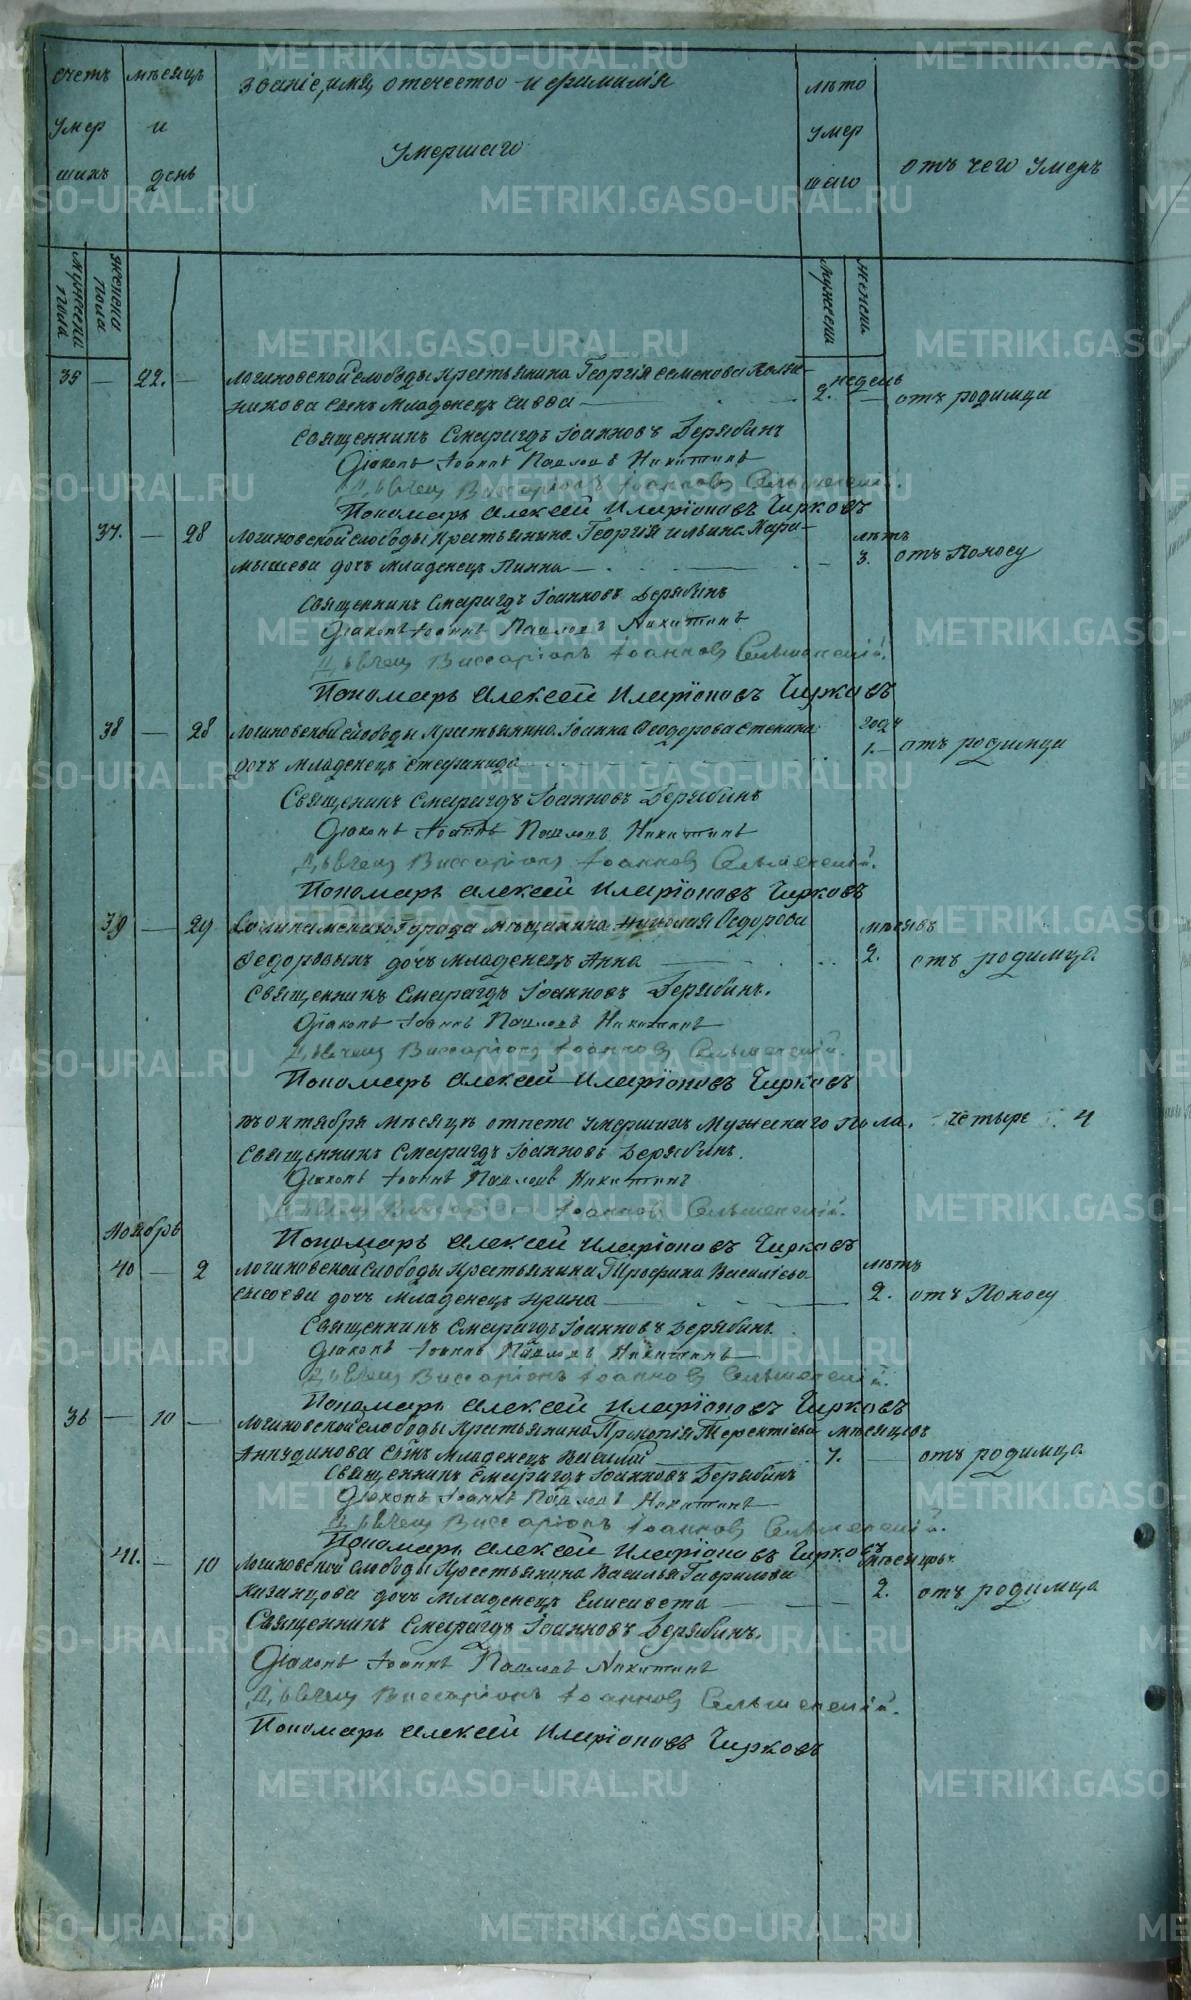 счетъ мѣсяцъ званіе, имя, отечество и фамилія лѣто
умер и умершаго умер
шихъ день шаго отъ чего умеръ
мужеска пола женска пола мужеска женск
35 — 22. — Логиновской слободы крестьянина Георгія Семенова недель
никова сынъ младенецъ Савва — 2. — отъ родимца
Священникъ Смарагдъ Іоанновъ Дерябинъ
Діаконъ Іоаннъ Павловъ Никитинъ
Дьячец Виссаріонъ Іоаннов Сельменскій.
Пономарь Алексей Иларіоновъ Чирковъ
37. — 28 Логиновской слободы крестьянина Георгія Ильина Кара- лѣтъ
мышева дочь младенецъ Пинна — 3. отъ поносу
Священникъ Смарагдъ Іоанновъ Дерябинъ
Діаконъ Іоаннъ Павловъ Никитинъ
Дьячец Виссаріонъ Іоаннов Сельменскій.
Пономарь Алексей Иларіоновъ Чирковъ
38 — 28 Логиновской слободы крестьянина Іоанна Феодорова Стенина годъ
дочь младенецъ Стефанида — 1. — отъ родимца
Священникъ Смарагдъ Іоанновъ Дерябинъ
Діаконъ Іоаннъ Павловъ Никитинъ
Дьячец Виссаріонъ Іоаннов Сельменскій.
Пономарь Алексей Иларіоновъ Чирковъ
39 — 29 города мѣщанина Николая Федорова
дочь младенецъ Анна — 2. отъ родимца
Священникъ Смарагдъ Іоанновъ Дерябинъ.
Діаконъ Іоаннъ Павловъ Никитинъ
Дьячец Виссаріонъ Іоаннов Сельменскій.
Пономарь Алексей Иларіоновъ Чирковъ
въ октября мѣсяце отпето умершихъ мужескаго пола. четыре 4
Священникъ Смарагдъ Іоанновъ Дерябинъ.
Діаконъ Іоаннъ Павловъ Никитинъ
Дьячец Виссаріонъ Іоаннов Сельменскій.
Пономарь Алексей Иларіоновъ Чирковъ
Ноябрь
40 — 2 Логиновской слободы крестьянина Трофима Василіева лѣтъ
Сысоева дочь младенецъ Ирина — 2. отъ поносу
Священникъ Смарагдъ Іоанновъ Дерябинъ.
Діаконъ Іоаннъ Павловъ Никитинъ
Дьячец Виссаріонъ Іоаннов Сельменскій.
Пономарь Алексей Иларіоновъ Чирковъ
36 — 10 — Логиновской слободы крестьянина Прокопія Терентіева мѣсяцов
Анпудинова сынъ младенецъ Василій — 7. — отъ родимца
Священникъ Смарагдъ Іоанновъ Дерябинъ
Діаконъ Іоаннъ Павловъ Никитинъ
Дьячец Виссаріонъ Іоаннов Сельменскій.
Пономарь Алексей Иларіоновъ Чирковъ
41. — 10 Логиновской слободы крестьянина Василья Гаврилова мѣсяцовъ
Казанцова дочь младенецъ Елисавета — 2. отъ родимца
Священникъ Смарагдъ Іоанновъ Дерябинъ.
Діаконъ Іоаннъ Павловъ Никитинъ
Дьячец Виссаріонъ Іоаннов Сельменскій.
Пономарь Алексей Иларіоновъ Чирковъ
METRIKI.GASO-URAL.RU